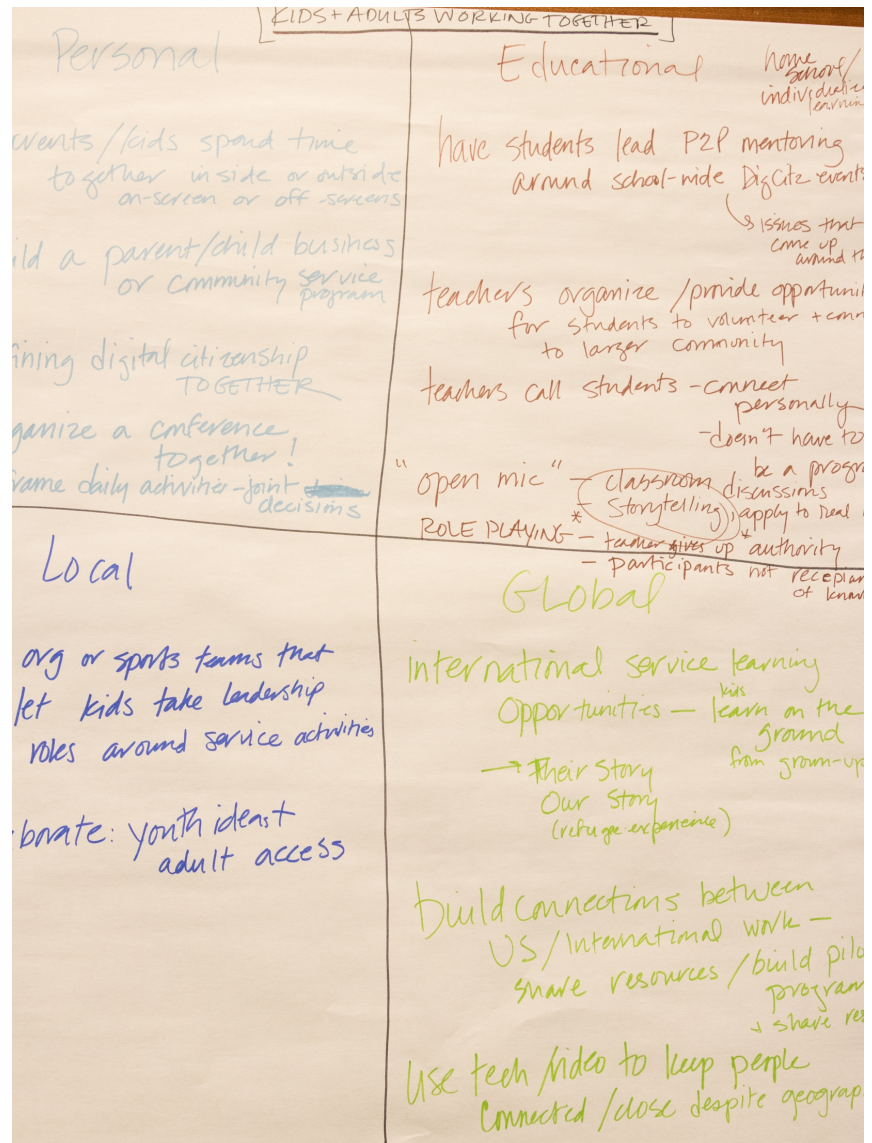 KIDS + ADULTS WORKING TOGETHER
Personal
/kids spend time
together inside or outside
on-screen or off-screens
a parent/child business
or community service
program
digital citizenship
TOGETHER
a conference
together!
daily activities - joint
decisions
Educational
home
school/
have students lead P2P mentoring
around school-wide DigCitz events
issues that
come up
around
teachers organize / provide
for students to volunteer +
to larger community
teachers call students - connect
personally
- doesn't have to
be a
"open mic" - classroom discussions
- Storytelling, apply to real
ROLE PLAYING * - teacher gives up authority
- participants not
of
Local
org or sports teams that
let kids take leadership
roles around service activities
: youth ideas +
adult access
GLobal
International service learning
Opportunities - kids learn on the
ground
from
→ Their Story
Our Story
(refugee experience)
build connections between
US/International work -
share resources / build
share
Use tech/video to keep people
connected/close despite